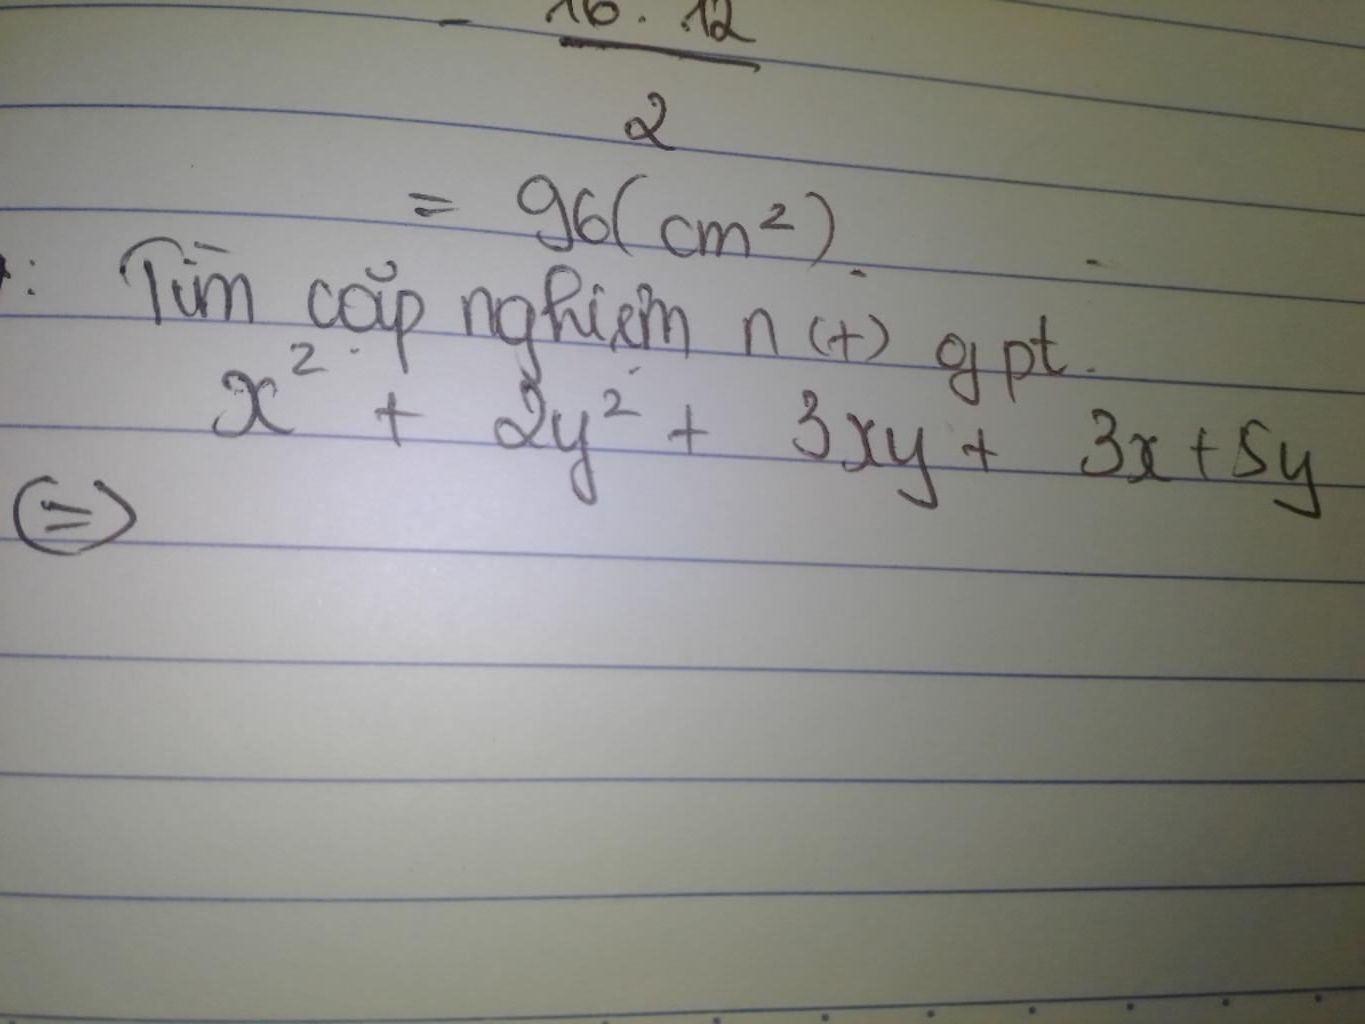 - 16 . 12
2
= 96 ( cm² ).
: Tìm cặp nghiệm n (+) pt.
x² + 2y² + 3xy + 3x + 5y
(=)